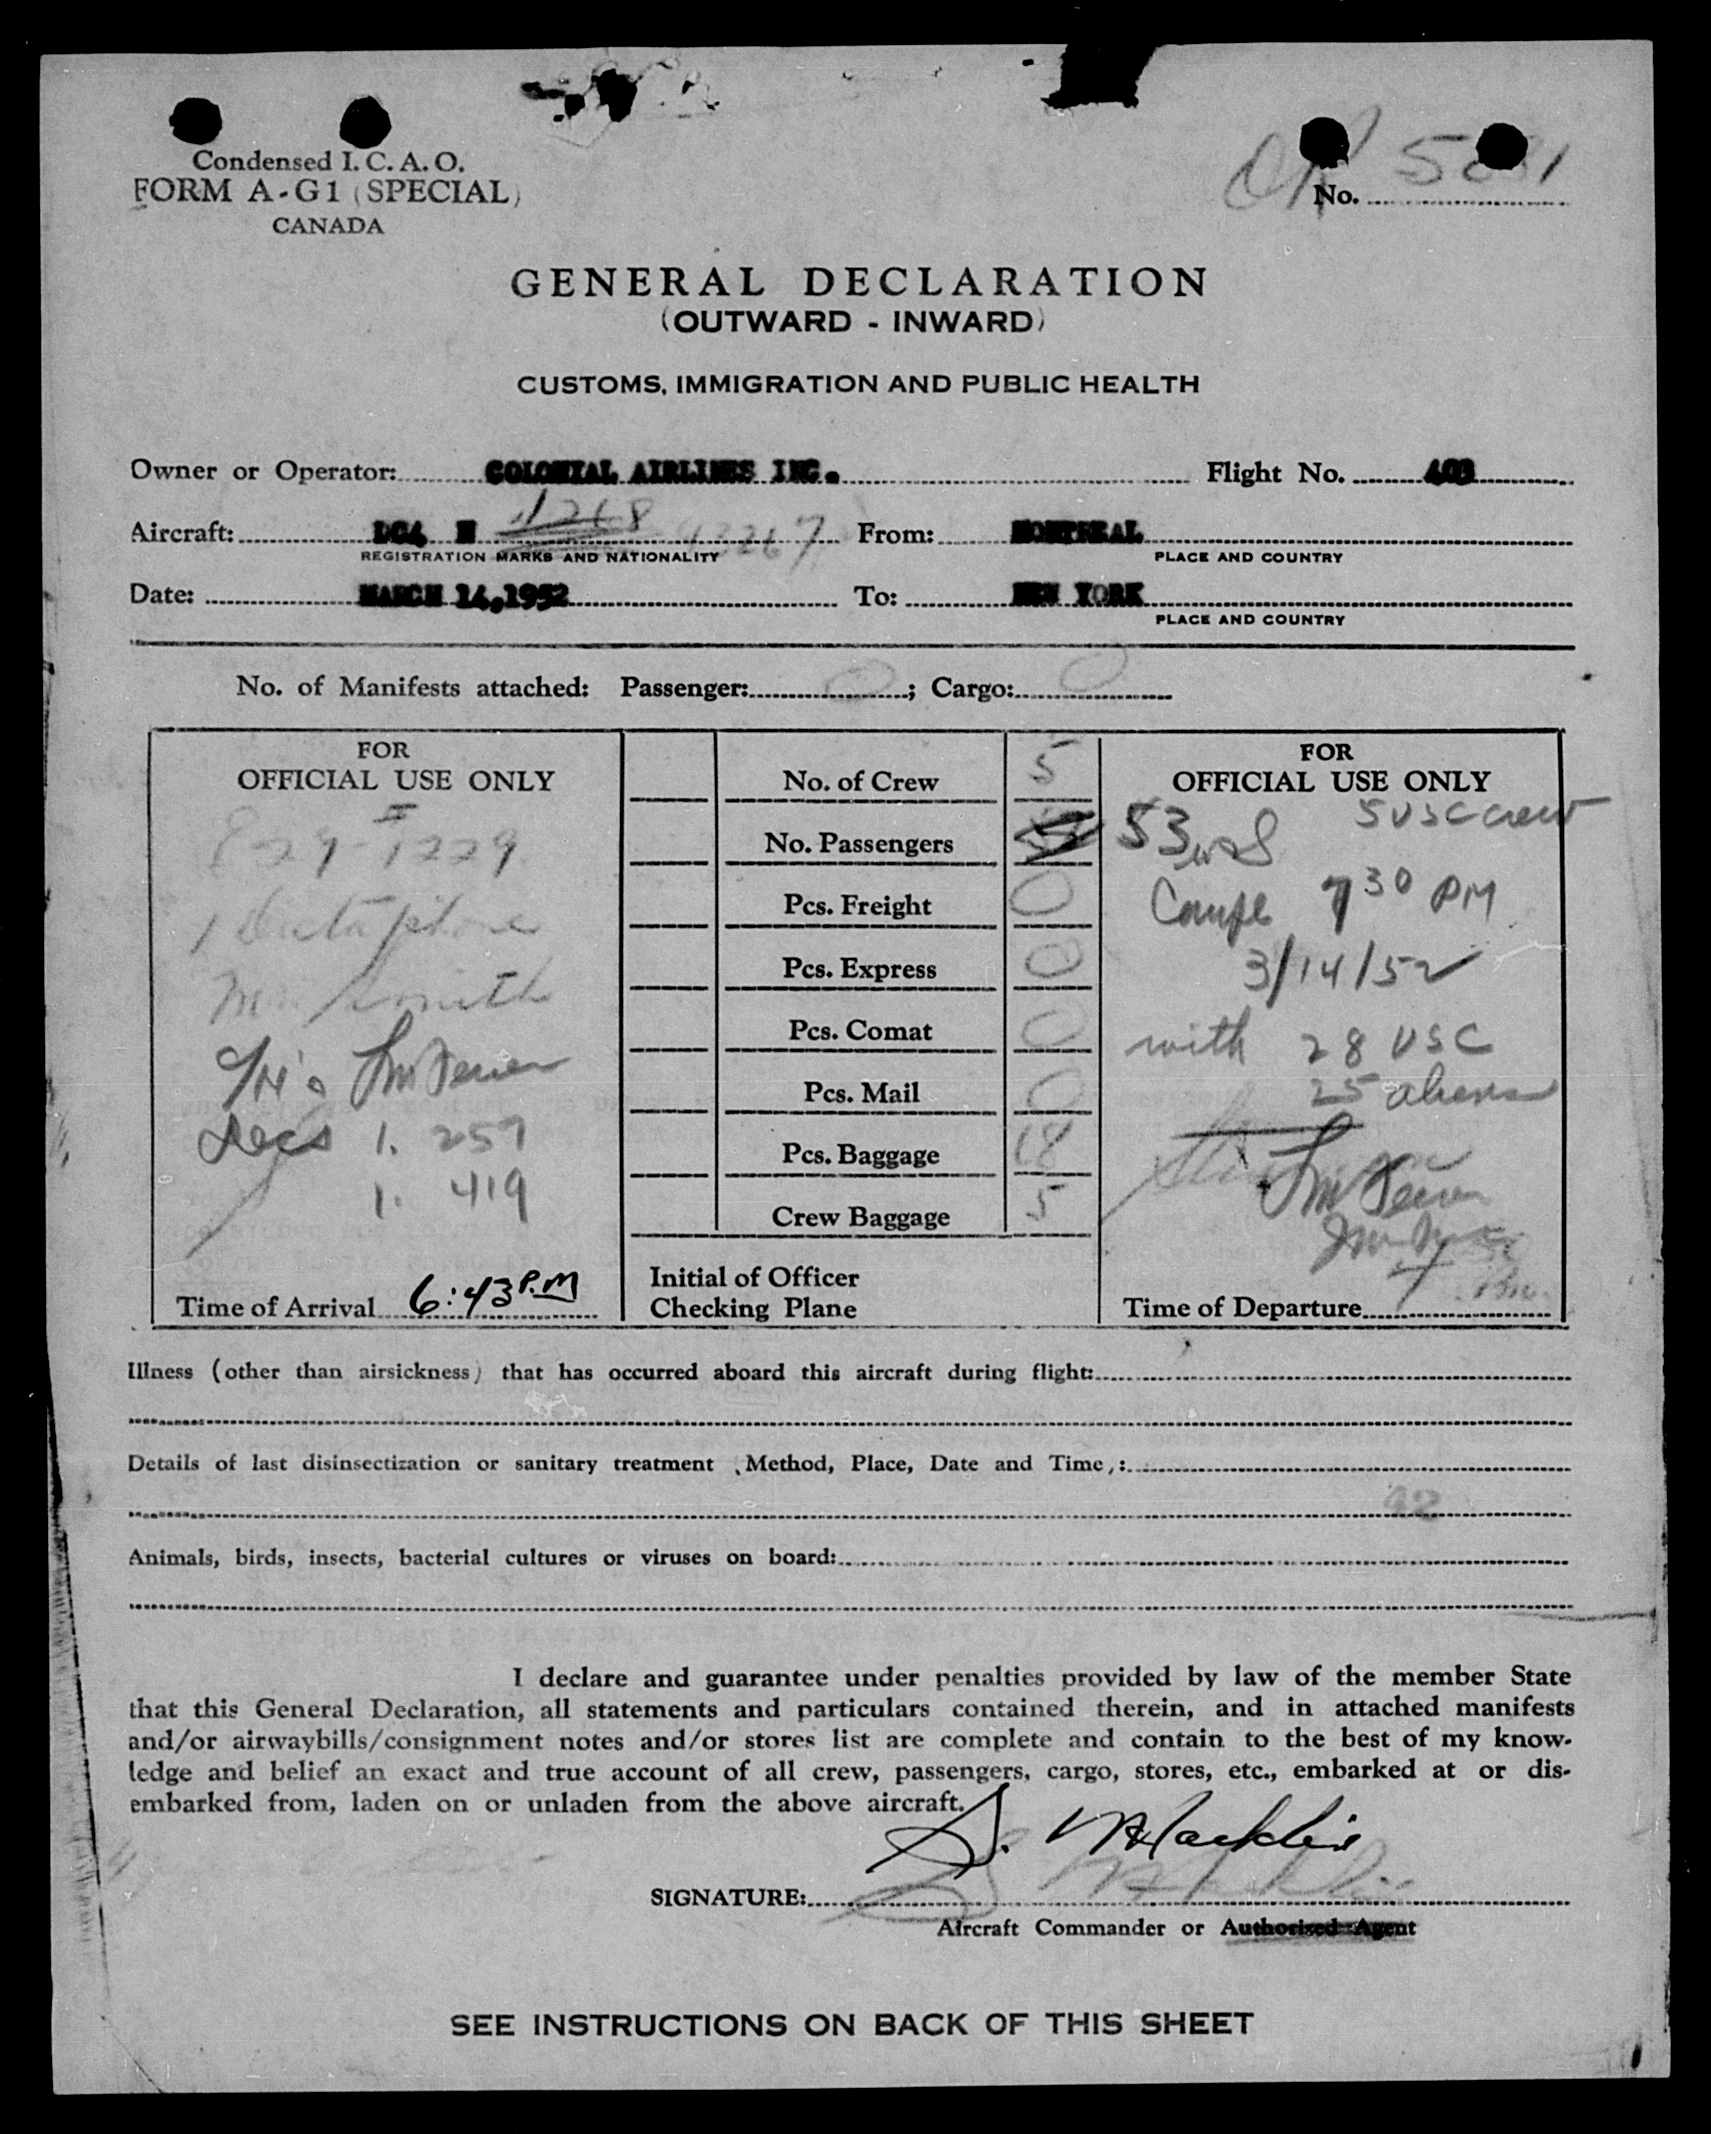 Condensed I. C. A. O.
FORM A-G1 (SPECIAL)
CANADA
No.
GENERAL DECLARATION
(OUTWARD - INWARD)
CUSTOMS, IMMIGRATION AND PUBLIC HEALTH
Owner or Operator: COLONIAL AIRLINES INC. Flight No. 403
Aircraft: DC4 N From: MONTREAL
REGISTRATION MARKS AND NATIONALITY PLACE AND COUNTRY
Date: MARCH 14,1952 To: NEW YORK
PLACE AND COUNTRY
No. of Manifests attached: Passenger: 0; Cargo: 0
FOR
OFFICIAL USE ONLY
829-1229
1 Dictaphone
Smith
Decs 1. 257
1. 419
Time of Arrival 6:43 P.M
No. of Crew 5
No. Passengers
Pcs. Freight 0
Pcs. Express 0
Pcs. Comat 0
Pcs. Mail 0
Pcs. Baggage 68
Crew Baggage 5
Initial of Officer
Checking Plane
FOR
OFFICIAL USE ONLY
5 USC crew
53
7 30 PM
3/14/52
with 28 USC
25 aliens
Time of Departure
Illness (other than airsickness) that has occurred aboard this aircraft during flight:
Details of last disinsectization or sanitary treatment (Method, Place, Date and Time):
92
Animals, birds, insects, bacterial cultures or viruses on board:
I declare and guarantee under penalties provided by law of the member State
that this General Declaration, all statements and particulars contained therein, and in attached manifests
and/or airwaybills/consignment notes and/or stores list are complete and contain to the best of my know-
ledge and belief an exact and true account of all crew, passengers, cargo, stores, etc., embarked at or dis-
embarked from, laden on or unladen from the above aircraft.
SIGNATURE: S. Macklin
Aircraft Commander or Authorized Agent
SEE INSTRUCTIONS ON BACK OF THIS SHEET